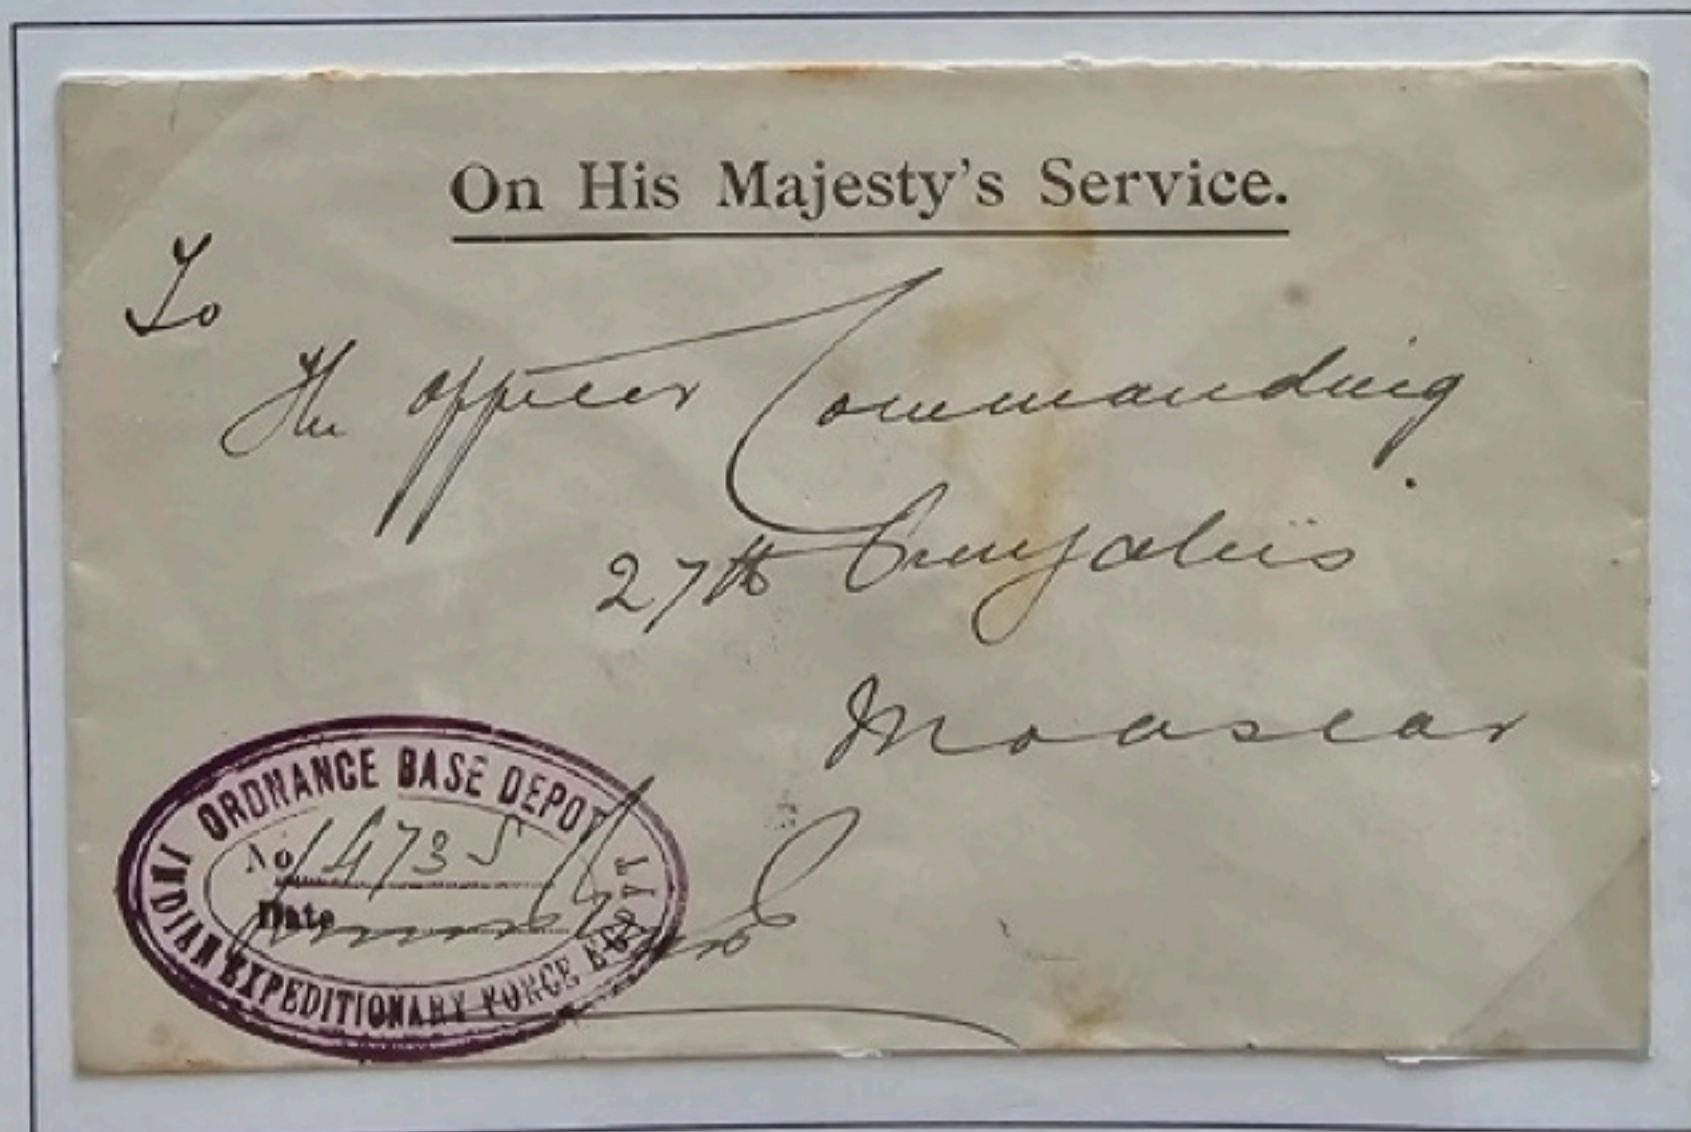 On His Majesty's Service.
To
The Officer Commanding
27th Punjabis
Moascar
ORDNANCE BASE DEPOT
No 14735
Date
INDIAN EXPEDITIONARY FORCE EGYPT